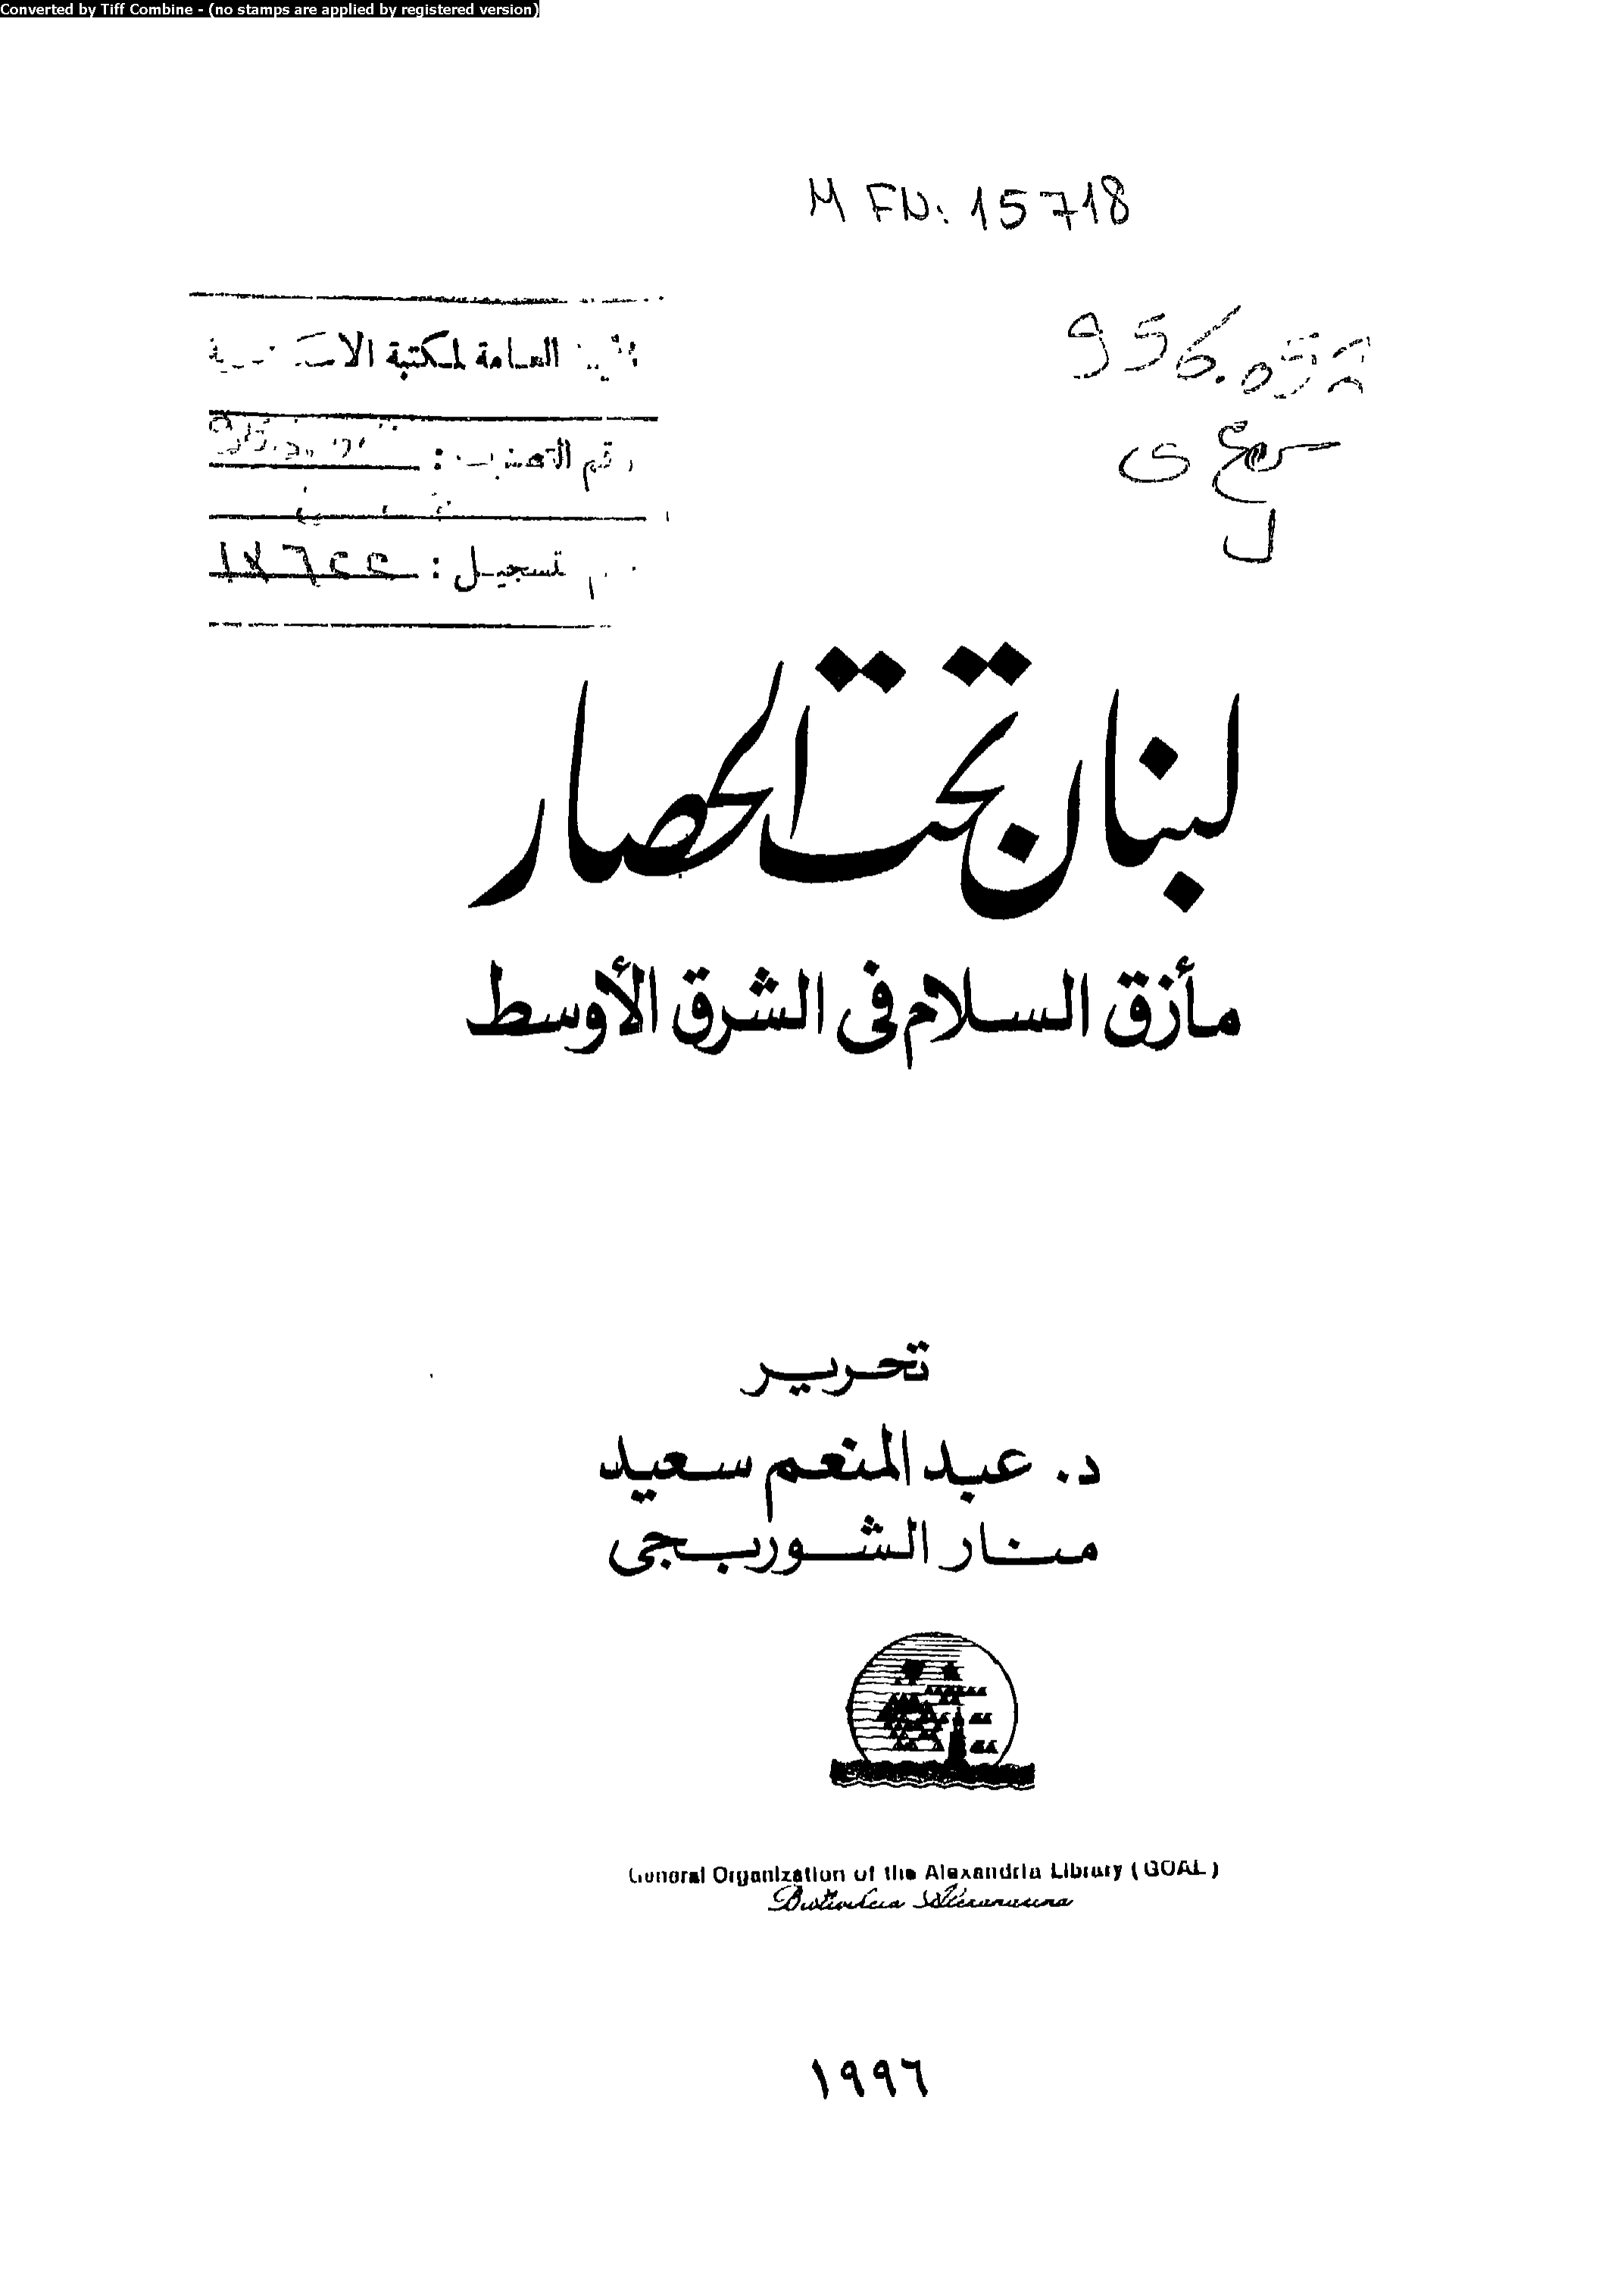 Converted by Tiff Combine - (no stamps are applied by registered version)
M FN: 15718
العامة لمكتبة
رقم التصنيف :
تسجيل : ١٧٦٤٤
956.05
سعى
ل
لبنان تحت الحصار
مأزق السلام فى الشرق الأوسط
تحرير
د. عبد المنعم سعيد
منار الشوربجى
General Organization of the Alexandria Library (GOAL)
Bibliotheca Alexandrina
١٩٩٦